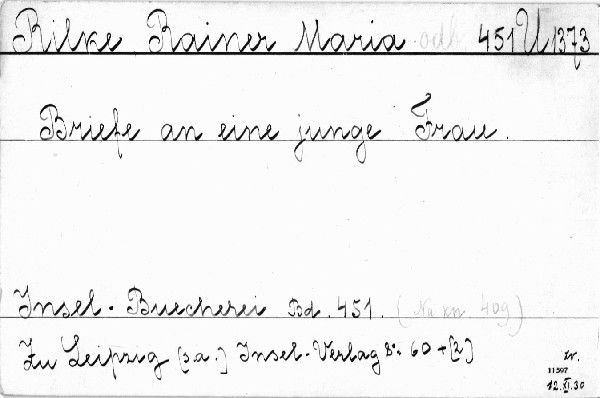 Rilke Rainer Maria odb. 451 U 1373
Briefe an eine junge Frau.
Insel-Buecherei Bd. 451. (Na kn 409)
Zu Leipzig [s.a.] Insel-Verlag 8° 60 + [2]
tr.
11597
12.XI.30